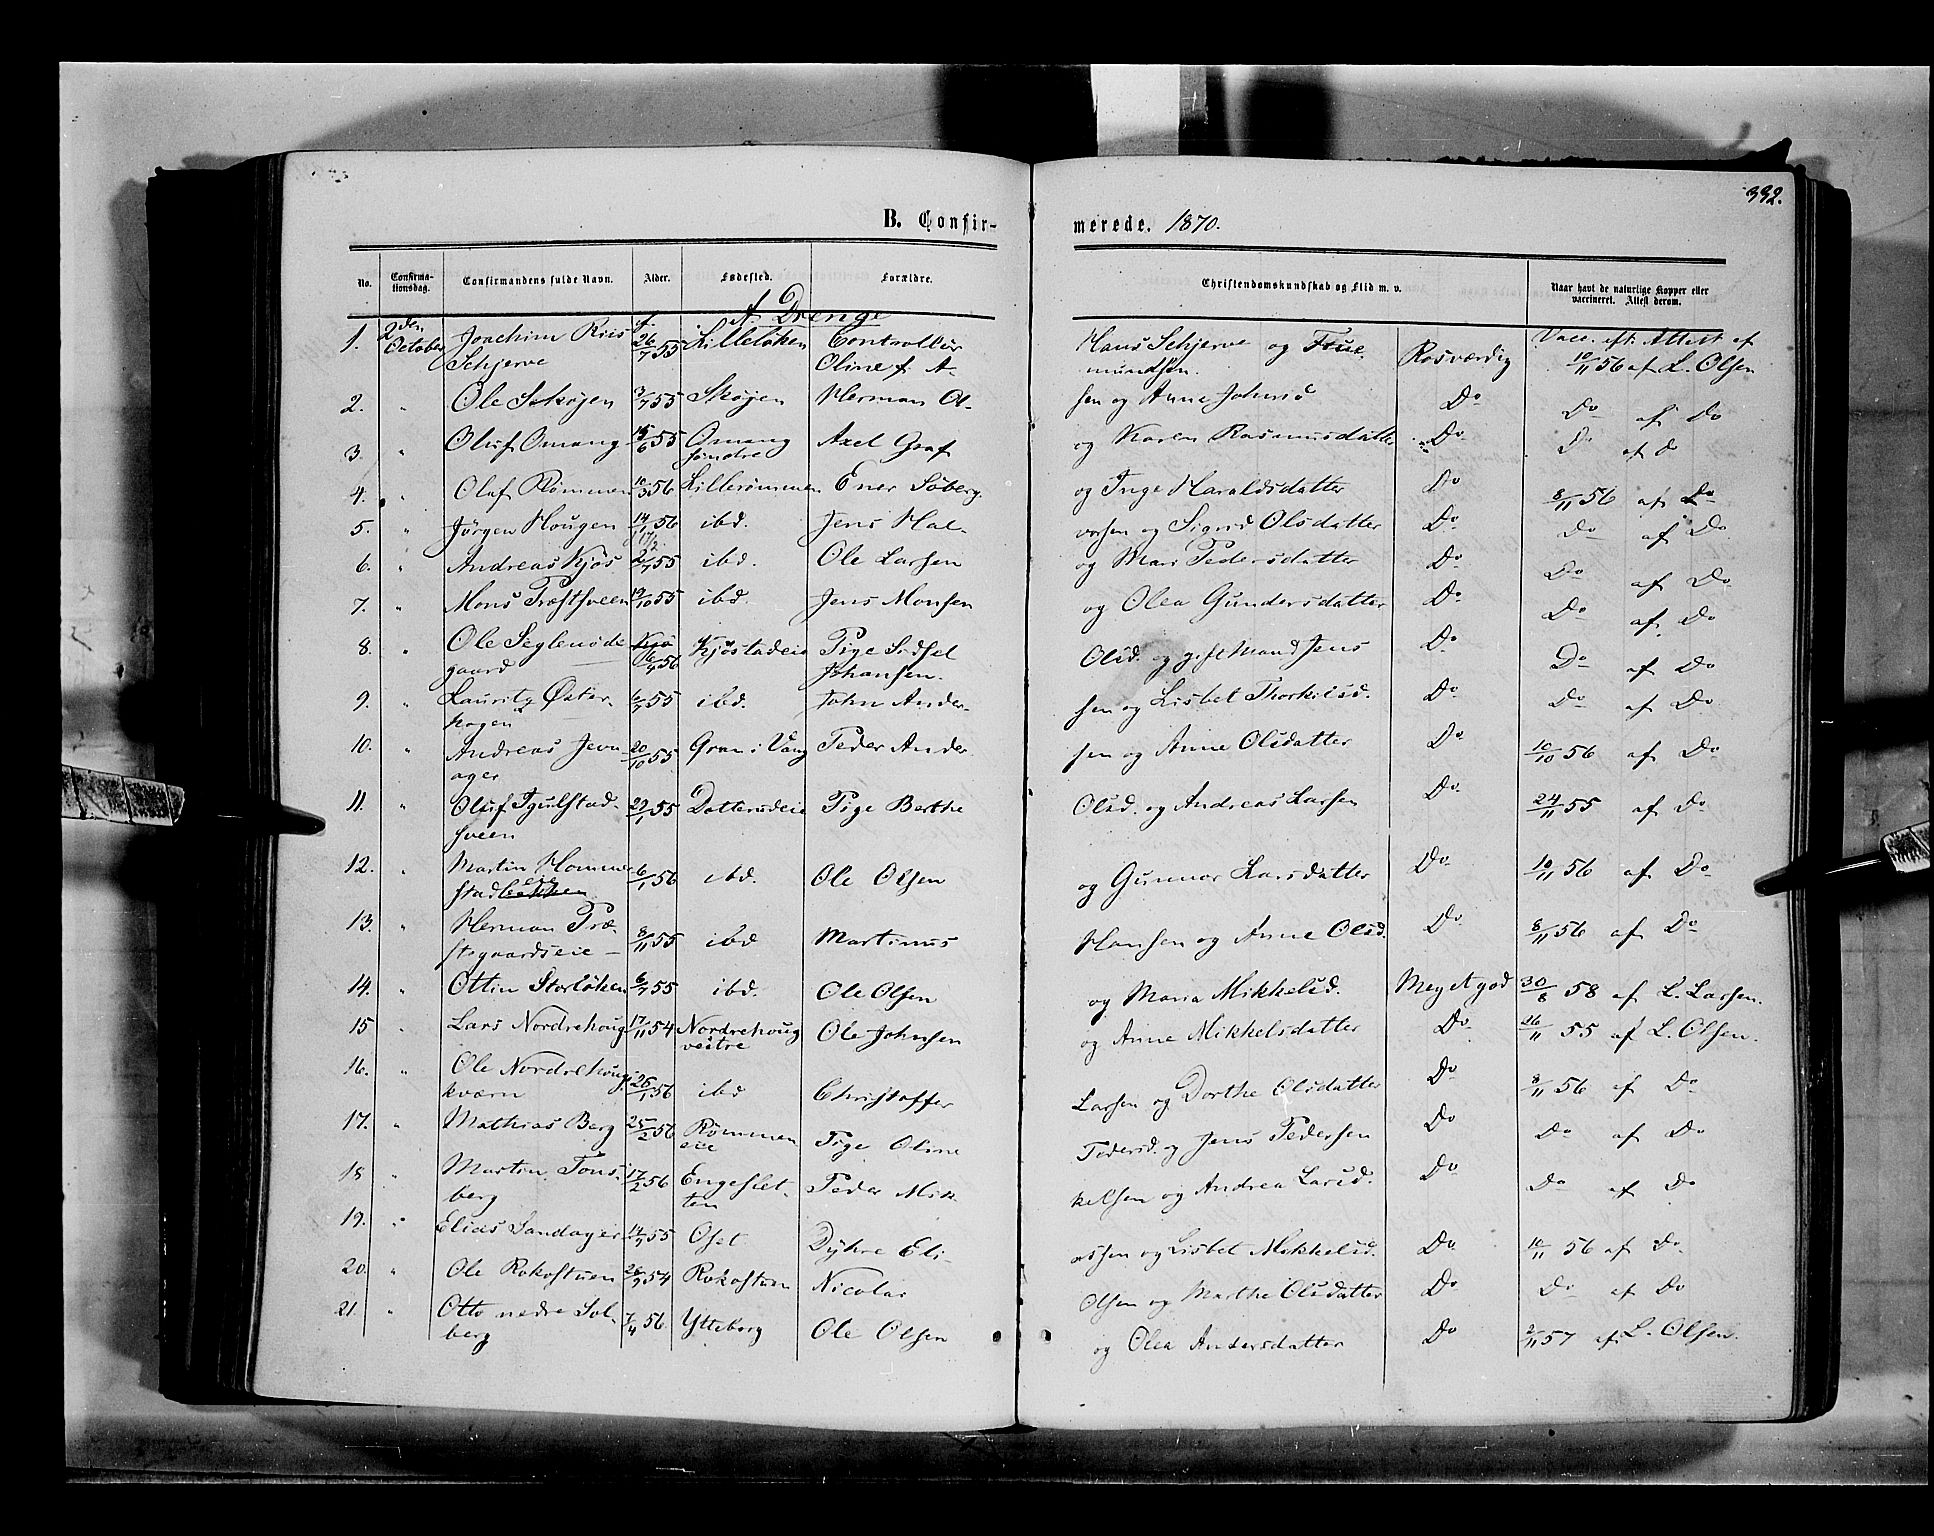 332.
B. Confir- merede. 1870.
No. Confirma-tionsdag. Confirmandens fulde Navn. Alder. Fødested. Forældre. Christendomskundskab og Flid m. v. Naar havt de naturlige Kopper eller vaccineret. Attest derom.
A. Drenge
1. 2den October Joachim Riis f. 26/7 55 Lilleløken Controllør Hans Schjerve og Frue Rosværdig Vacc. eft. Attest af
Schjerve Oline f. A- mundsen. 10/11 56 af L. Olsen
2. " Ole Skøjen 3/7 55 Skøjen Herman Ol- sen og Anne Johnsd Do Do af Do
3. " Oluf Omang 15/6 55 Omang Axel Graf og Karen Rasmusdatter Do Do af D
søndre
4. " Olaf Rømmen 10/3 56 Lillerømmen Ener Søberg. og Inge Haraldsdatter Do 8/11 56 af Do
5. " Jørgen Hougen 14/1 56 ibd. Jens Hal- vorsen og Sigrid Olsdatter Do Do af Do
6. " Andreas Kjos 2/7 55 ibd. Ole Larsen og Mari Pedersdatter Do Do af Do
7. " Mons Præstsveen 19/10 55 ibd. Jens Monsen og Olea Gundersdatter Do Do af Do
8. " Ole Seglenøde- Kjøstadeie Pige Sidsel Olsd. og gift Mand Jens Do Do af Do
gaard 16/4 56 Johansen.
9. " Lauritz Øster- 6/7 55 ibd. John Ander- sen og Lisbet Thorkilsd. Do Do af Do
hagen
10. " Andreas Jevn- 20/10 55 Gran i Vang Peder Ander- sen og Anne Olsdatter Do 10/10 56 af Do
ager
11. " Oluf Igulstad- 22/1 55 Dotterudeie Pige Berthe Olsd. og Andreas Larsen Do 24/11 55 af Do
sveen
12. " Martin Hommer- 6/1 56 ibd. Ole Olsen og Gunnor Larsdatter Do 10/11 56 af Do
stad eie
13. " Herman Præ- 8/11 55 ibd Martinus Hansen og Anne Olsd. Do 8/11 56 af Do
stegaardseie
14. " Ottin Storløken 6/7 55 ibd. Ole Olsen og Maria Mikkelsd. Meget god 30/8 58 af L. Larsen.
15 " Lars Nordrehoug 17/11 54 Nordrehoug Ole Johnsen og Anne Mikkelsdatter Do 26/11 55 af L. Olsen.
vestre
16. Ole Nordrehoug- 26/1 56 ibd Christoffer Larsen og Dorthe Olsdatter Do 8/11 56 af Do
kværn
17. " Mathias Berg 25/2 56 Rømmen Pige Oline Pedersd. og Jens Pedersen Do Do af Do
eie
18 " Martin Tons- 17/2 56 Engeslet- Peder Mik- kelsen og Andrea Larsd. Do Do af Do
berg ten
19. " Elias Sandager 14/7 55 Oset Dyhre Eli- assen og Lisbet Mikkelsd. Do 10/11 56 af Do
20. " Ole Rokostuen 26/9 54 Rokostuen Nicolai Olsen og Marthe Olsdatter Do Do af Do
21. " Otto nedre Sol- 7/4 56. Ytteborg Ole Olsen og Olea Andersdatter Do 2/11 57 af L. Olsen.
berg